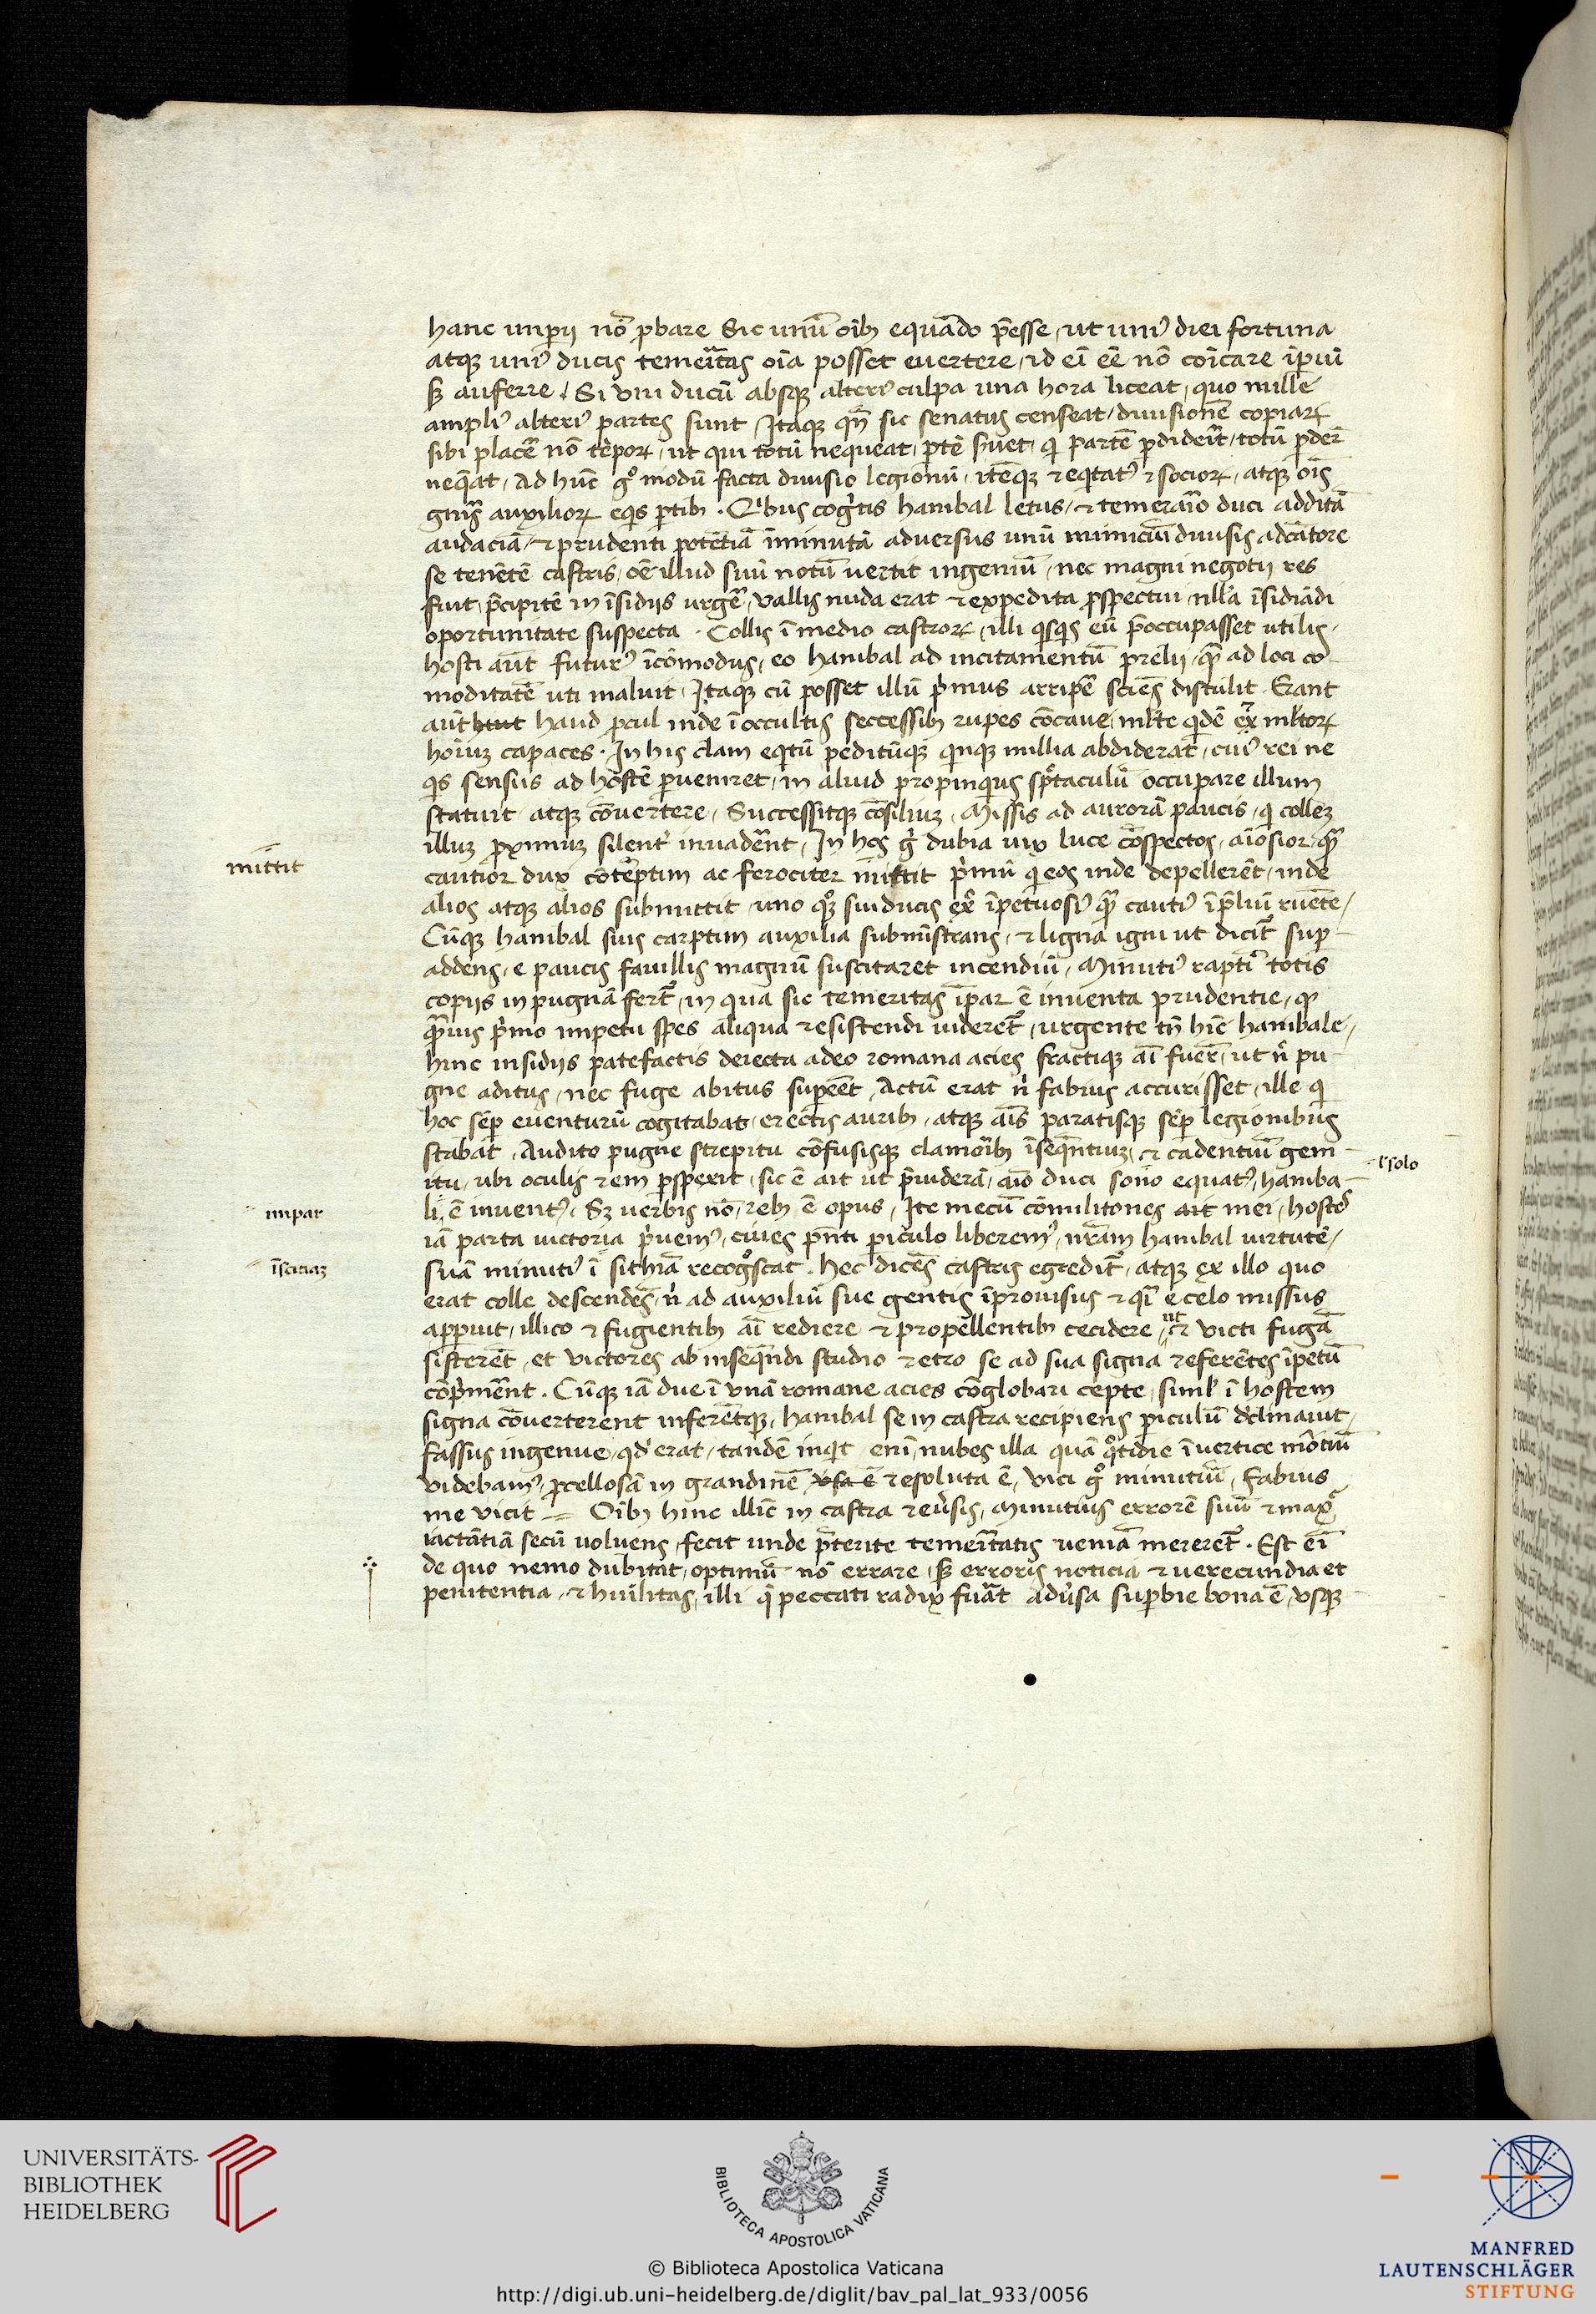 hanc imp̄ij nō ꝓbare Sic unū oīb equādo p̄esse, ut uniꝰ diei fortuna
atqꝫ uniꝰ ducis temeītas oīa posset euertere, id eī eē nō coīcare īꝑiū
sꝫ auferre, Si uni ducū absqꝫ alteriꝰ culpa una hora liceat, quo mille
ampliꝰ alteriꝰ partes sunt Itaqꝫ qn̄ sic senatus censeat, diuisionē copiaꝝ
sibi placē nō tēpoꝝ, ut qui totū nequeat, ꝑtē s̄uet, qi partē ꝑdidеīt, totū ꝑdeē
neq̄at, Ad hūc gͦ modū facta diuisio legionū, itēqꝫ ⁊ eq̇tatꝰ ⁊ socioꝝ, atqꝫ oīs
gn̄is auxilioꝝ eq̇s ꝑtib. Qⁱbus coġtis hanibal letus, ⁊ temerāio duci additā
audaciā, ⁊ prudenti potētiā īminutā aduersus unū inimicū diuisis
se tenētē castris, oē illud suū notū uertit ingeniū, nec magni negotij res
fuit, p̄cipitē in īsidijs urgē, vallis nuda erat ⁊ expedita ꝓspectui, nll̄a īsidiādi
oportunitate suspecta. Collis ī medio castroꝝ, illi q̇sq̇s eū p̄occupasset utilis,
hosti aūt futurꝰ īcōmodus, eo hanibal ad incitamentū prelij, qͣ ad loci co-
moditatē uti maluit, Itaqꝫ cū posset illū p̄mus arripē sciēs distulit Erant
aūt haud ꝓcul inde ī occultis seccessib rupes cōcaue, ml̄te q̇dē ml̄toꝝ
hoīuꝫ capaces. In his clam eq̇tū peditūqꝫ q̇nqꝫ millia abdiderat, cuiꝰ rei ne
q̇s sensus ad hostē ꝑueniret, in aliud propinq̇us spectaculū occupare illum
statuit atqꝫ cōuertere, Successitqꝫ cōsiliuꝫ, Missis ad aurorā paucis, qi colleꝫ
illuꝫ ꝓximuꝫ silentꝰ inuadēnt, In hos ġ dubia uix luce cōspectos, aīosior qͣ
cautior dux cōtēptim ac ferociter mittit p̄mū qi eos inde depellerēt, inde
alios atqꝫ alios submittit, uno qꝫ sui ducis ex̄ īpetuosiꝰ qͣ cautiꝰ ī p̄liū ruēte,
Cūqꝫ hanibal suis carptim auxilia submīstrans, ⁊ ligna igni ut dicit̄ suꝑ-
addens, e paucis fauillis magnū suscitaret incendiū, Minutiꝰ raptī totis
copijs in pugnā fert̄, in qua sic temeritas īpar ē inuenta prudentie, qꝫ
qͣuis p̄mo impetu spes aliqua resistendi uideret̄, urgente tn̄ hīc hanibale,
hinc insidijs patefactis deiecta adeo romana acies fractiqꝫ aī fueꝝ, ut n̄ pu-
gne aditus, nec fuge abitus suꝑeēt, Actū erat nⁱ fabius accurisset, ille qi
hoc sēꝑ euenturū cogitabat, erectis aurib, atqꝫ aīs paratisqꝫ sēꝑ legionibus
stabat, Audito pugne strepitu cōfusisqꝫ clamoīb īseq̄ntiuꝫ, ⁊ cadentiū gem-
itu, ubi oculis rem ꝑspexit, sic ē ait ut p̄uiderā, aīo duci sono equatꝰ, haniba-
li, ē inuentꝰ. Sꝫ uerbis nō, reb, ē opus, Ite mecū cōmilitones ait mei, hostē
iā parta uictoria p̄uemꝰ, ciues p̄nti ꝑiculo liberemꝰ, nr̄am hanibal uirtutē,
suā minutiꝰ ī sithiā recogͦscat. hec dicēs castris egredit̄, atqꝫ ex illo quo
erat colle descendēs, nⁱ ad auxiliū sue gentis īprouisus ⁊ qͣi e celo missus
apꝑuit, illico ⁊ fugientib aī rediere ⁊ propellentib cecidere, ut ⁊ victi fugā
sisterēt, et victores ab insequēndi studio retro se ad sua signa referētes īpetū
cōp̄mēnt. Cūqꝫ iā due ī unā romane acies cōglobari cepte, siml̄ ī hostem
signa cōuerterent inferētqꝫ, hanibal se in castra recipiens ꝑiculū declinauit,
fassus ingenue, qd̄ erat, tandē inq̇t enī, nubes illa quā qͦtidie ī uertice mōtiū
videbamꝰ, ꝓcellosā in grandinē resoluta ē, vici gͦ minutiū, Fabius
me vicit = Oīb hinc illīc in castra reūsis, Minutius errorē suū ⁊ maxͣ
iactātiā secū uoluens, fecit unde p̄terite temeītatis ueniā mereret̄. Est eī
de quo nemo dubitat, optimū nō errare, sꝫ erroris noticia ⁊ uerecundia et
penitentia, ⁊ hūilitas, illi q̄ peccati radix fuāt adūsa suꝑbie bona ē, vsqꝫ
mittit
impar
īscitiaꝫ
l' solo
UNIVERSITÄTS-
BIBLIOTHEK
HEIDELBERG
BIBLIOTECA APOSTOLICA VATICANA
MANFRED
LAUTENSCHLÄGER
STIFTUNG
© Biblioteca Apostolica Vaticana
http://digi.ub.uni-heidelberg.de/diglit/bav_pal_lat_933/0056